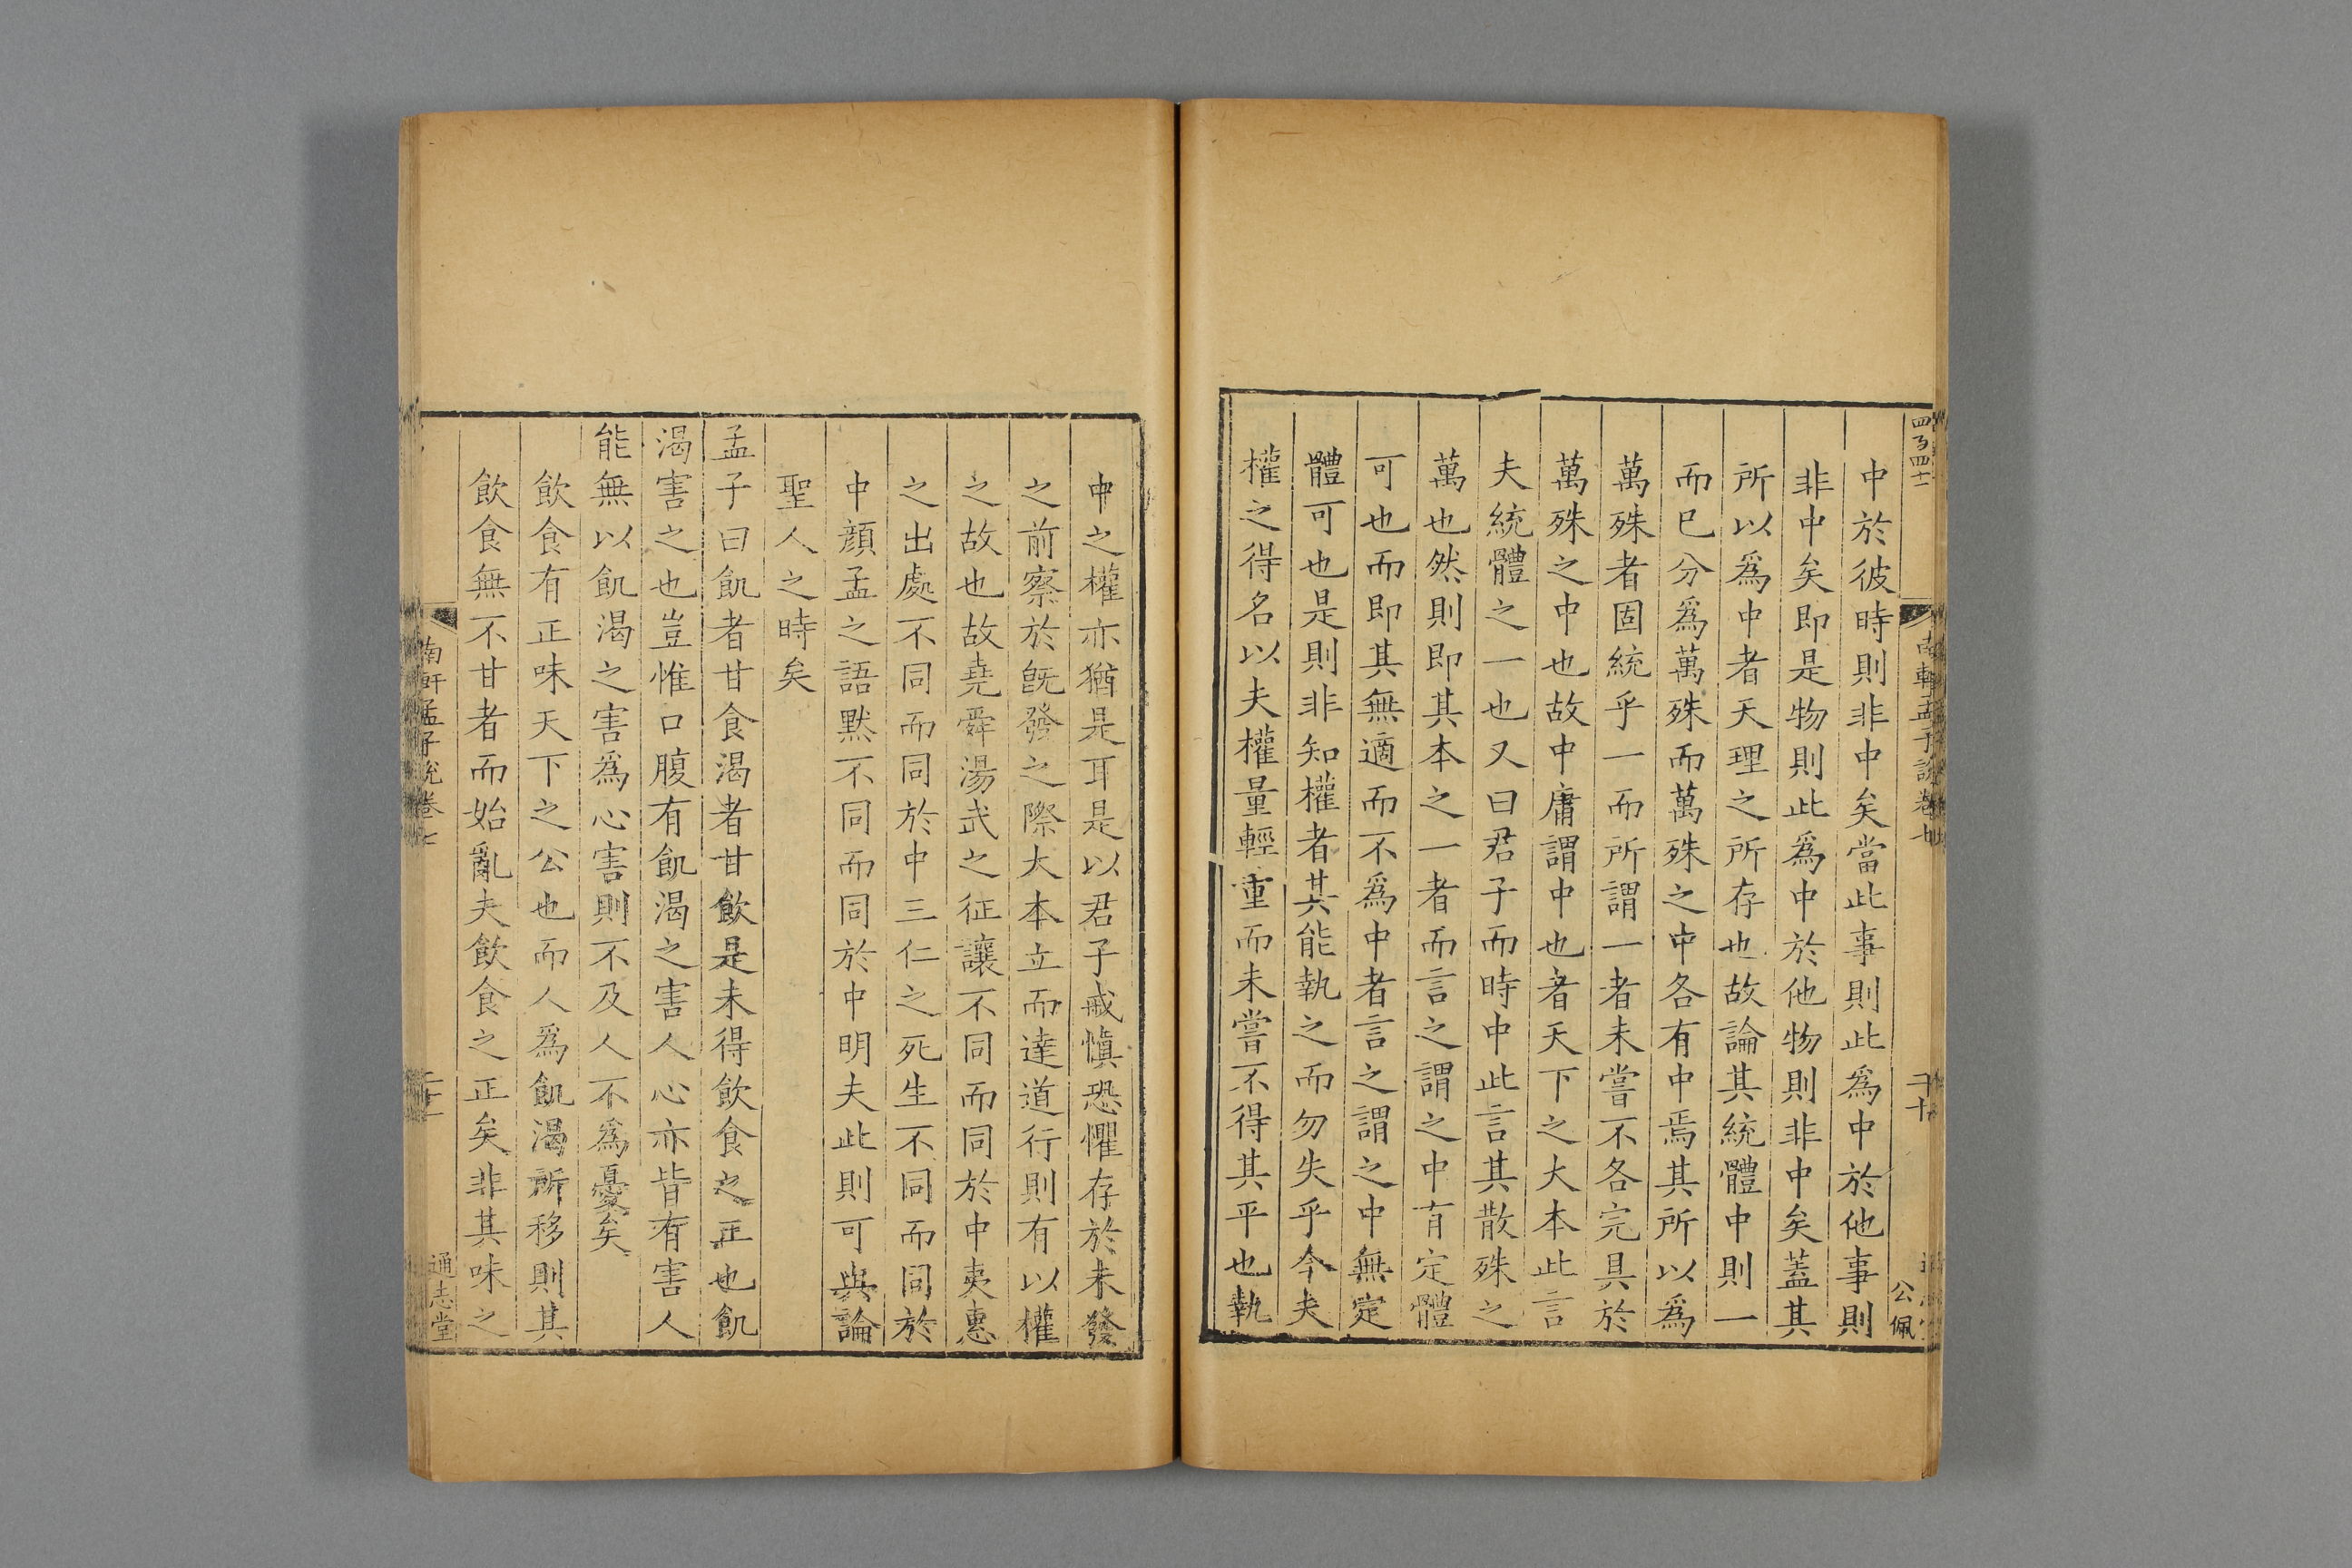 中於彼時則非中矣當此事則此爲中於他事則
非中矣即是物則此爲中於他物則非中矣蓋其
所以爲中者天理之所存也故論其統體中則一
而已分爲萬殊而萬殊之中各有中焉其所以爲
萬殊者固統乎一而所謂一者未嘗不各完具於
萬殊之中也故中庸謂中也者天下之大本此言
夫統體之一也又曰君子而時中此言其散殊之
萬也然則即其本之一者而言之謂之中有定體
可也而即其無適而不爲中者言之謂之中無定
體可也是則非知權者其能執之而勿失乎今夫
權之得名以夫權量輕重而未嘗不得其平也執
中之權亦猶是耳是以君子戒慎恐懼存於未發
之前察於旣發之際大本立而達道行則有以權
之故也故堯舜湯武之征讓不同而同於中夷惠
之出處不同而同於中三仁之死生不同而同於
中顏孟之語默不同而同於中明夫此則可與論
聖人之時矣
孟子曰飢者甘食渴者甘飲是未得飲食之正也飢
渴害之也豈惟口腹有飢渴之害人心亦皆有害人
能無以飢渴之害爲心害則不及人不爲憂矣
飲食有正味天下之公也而人爲飢渴所移則其
飲食無不甘者而始亂夫飲食之正矣非其味之
南軒孟子說卷七
通志堂
公佩